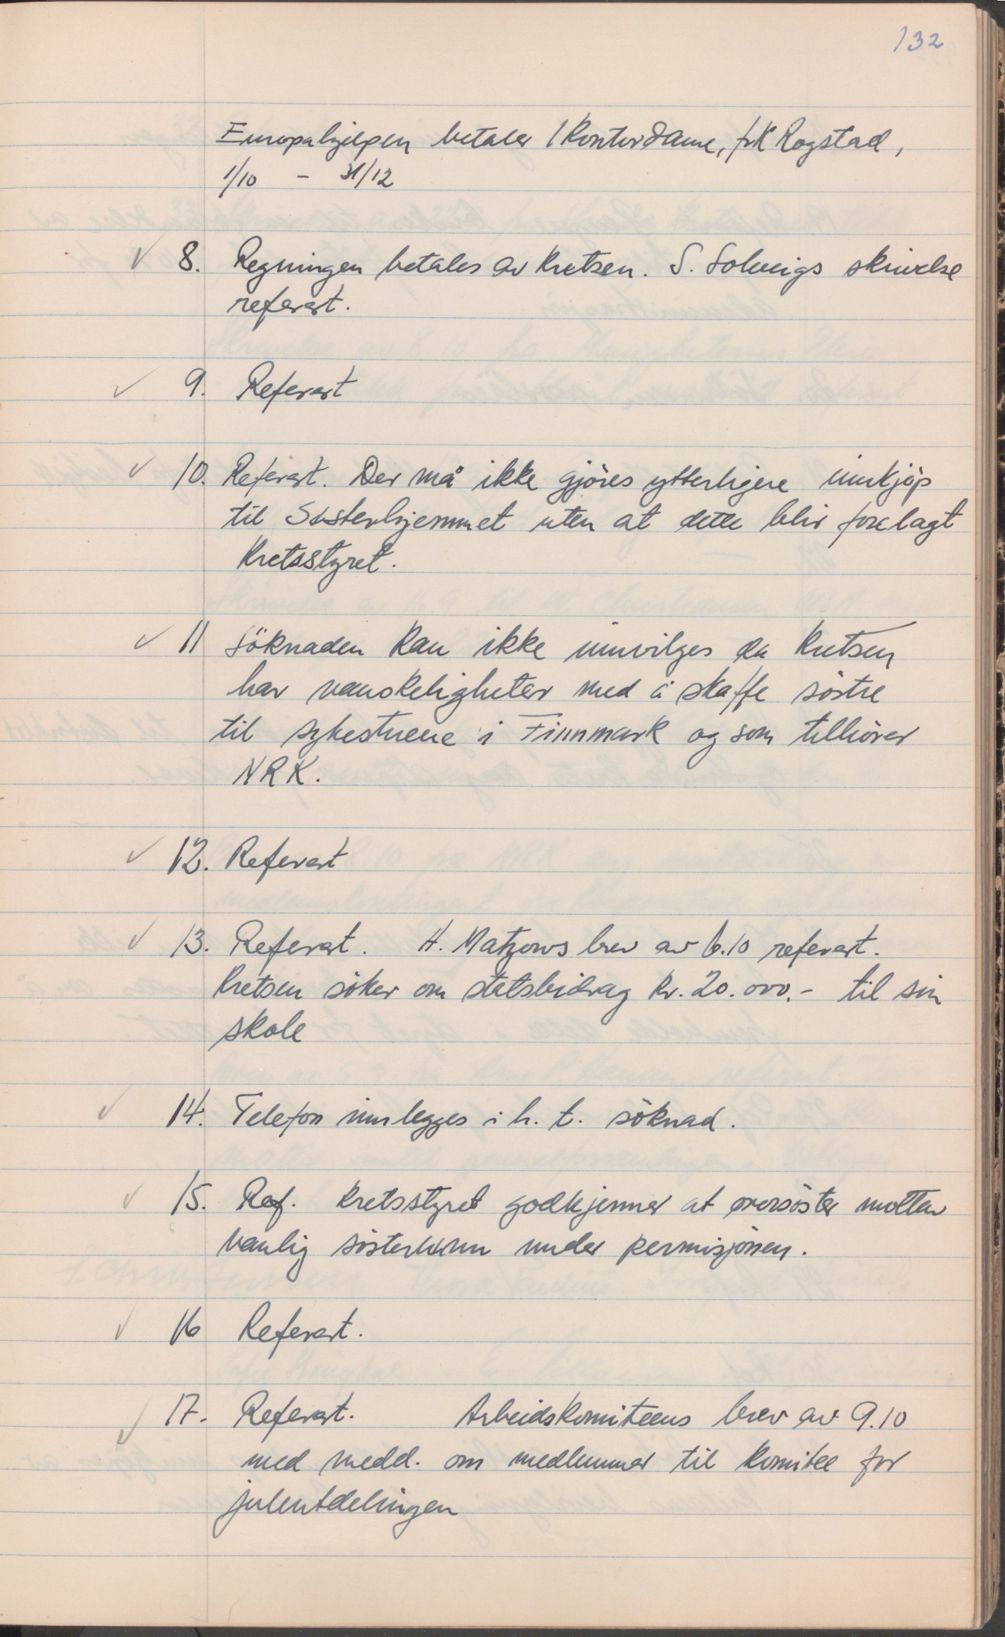 132
Europahjelpen betaler 1 kontordame, frk Rogstad,
1/10 - 31/12
✓ 8. Regningen betales av kretsen. S. Solveigs skrivelse
referert.
✓ 9. Referert
✓ 10. Referert. Der må ikke gjöres ytterligere innkjöp
til Sösterhjemmet uten at dette blir forelagt
kretsstyret.
✓ 11 Söknaden kan ikke innvilges da kretsen
har vanskeligheter med å skaffe söstre
til sykestuene i Finnmark og som tilhörer
NRK.
✓ 12. Referert
✓ 13. Referert. H. Matzows brev av 6.10 referert.
Kretsen söker om statsbidrag kr. 20.000.- til sin
skole
✓ 14. Telefon innlegges i h. t. söknad.
✓ 15. Ref. Kretsstyret godkjenner at oversöster mottar
vanlig sösterlönn under permisjonen.
✓ 16 Referert.
✓ 17. Referert. Arbeidskomiteens brev av 9.10
med medd. om medlemmer til komitee for
juleutdelingen